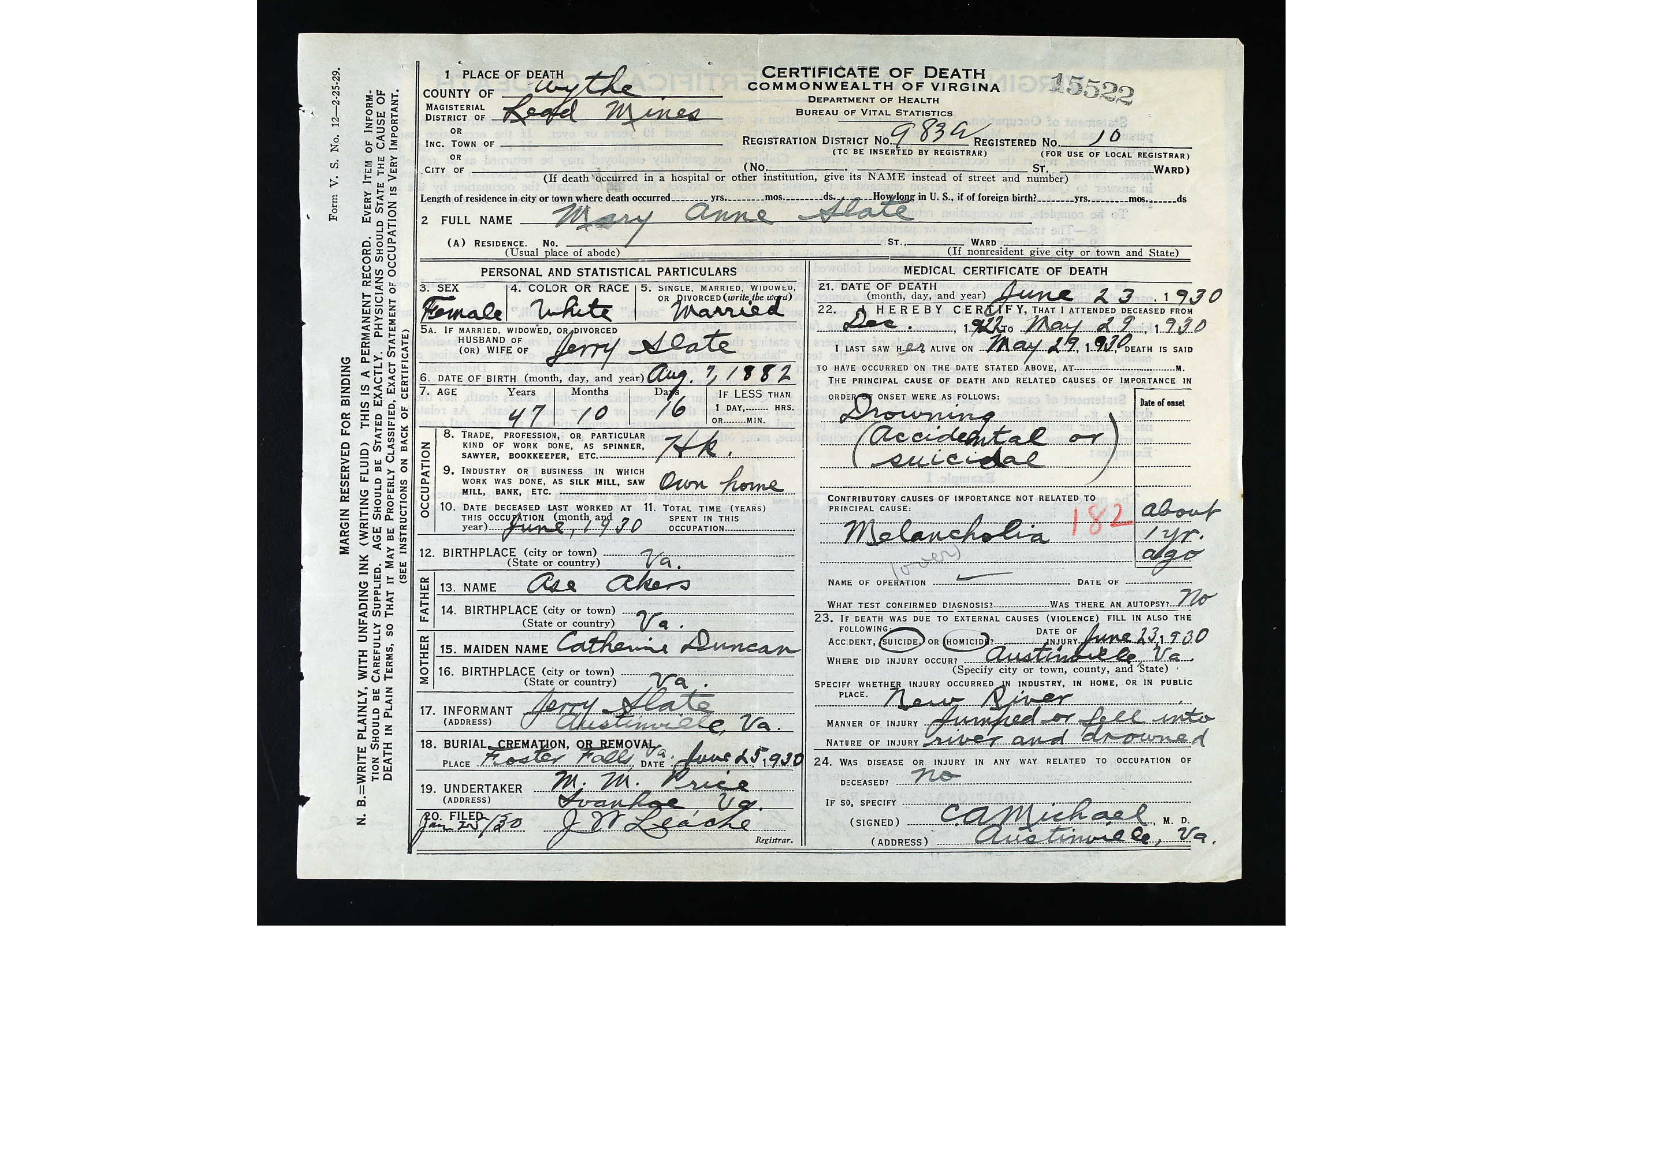 Form V. S. No. 12—2-25-29.
MARGIN RESERVED FOR BINDING
N. B.=WRITE PLAINLY, WITH UNFADING INK (WRITING FLUID) THIS IS A PERMANENT RECORD. EVERY ITEM OF INFORM-
TION SHOULD BE CAREFULLY SUPPLIED. AGE SHOULD BE STATED EXACTLY. PHYSICIANS SHOULD STATE THE CAUSE OF
DEATH IN PLAIN TERMS, SO THAT IT MAY BE PROPERLY CLASSIFIED. EXACT STATEMENT OF OCCUPATION IS VERY IMPORTANT.
(SEE INSTRUCTIONS ON BACK OF CERTIFICATE)
CERTIFICATE OF DEATH
COMMONWEALTH OF VIRGINA
DEPARTMENT OF HEALTH
BUREAU OF VITAL STATISTICS
15522
1 PLACE OF DEATH
COUNTY OF Wythe
MAGISTERIAL
DISTRICT OF Lead Mines
OR
INC. TOWN OF
OR
CITY OF
REGISTRATION DISTRICT NO. 983a REGISTERED NO. 10
(TC BE INSERTED BY REGISTRAR) (FOR USE OF LOCAL REGISTRAR)
(No. St. WARD)
(If death occurred in a hospital or other institution, give its NAME instead of street and number)
Length of residence in city or town where death occurred yrs. mos. ds. How long in U. S., if of foreign birth? yrs. mos. ds
2 FULL NAME Mary Anne Slate
(A) RESIDENCE. No. ST., WARD
(Usual place of abode) (If nonresident give city or town and State)
PERSONAL AND STATISTICAL PARTICULARS
3. SEX 4. COLOR OR RACE 5. SINGLE, MARRIED, WIDOWED,
OR DIVORCED (write the word)
Female White Married
5A. IF MARRIED, WIDOWED, OR DIVORCED
HUSBAND OF
(OR) WIFE OF Jerry Slate
6. DATE OF BIRTH (month, day, and year) Aug. 7, 1882
7. AGE Years Months Days IF LESS THAN
47 10 16 1 DAY, HRS.
OR MIN.
OCCUPATION
8. TRADE, PROFESSION, OR PARTICULAR
KIND OF WORK DONE, AS SPINNER,
SAWYER, BOOKKEEPER, ETC. Hk.
9. INDUSTRY OR BUSINESS IN WHICH
WORK WAS DONE, AS SILK MILL, SAW
MILL, BANK, ETC. Own home
10. DATE DECEASED LAST WORKED AT 11. TOTAL TIME (YEARS)
THIS OCCUPATION (month and SPENT IN THIS
year) June, 1930 OCCUPATION
12. BIRTHPLACE (city or town)
(State or country) Va.
FATHER
13. NAME Ase Akers
14. BIRTHPLACE (city or town)
(State or country) Va.
MOTHER
15. MAIDEN NAME Catherine Duncan
16. BIRTHPLACE (city or town)
(State or country) Va.
17. INFORMANT Jerry Slate
(ADDRESS) Austinville, Va.
18. BURIAL, CREMATION, OR REMOVAL
PLACE Foster Falls, Va. DATE June 25, 1930
19. UNDERTAKER M. M. Price
(ADDRESS) Ivanhoe, Va.
20. FILED
Jan 25/30 J W Leache
Registrar.
MEDICAL CERTIFICATE OF DEATH
21. DATE OF DEATH
(month, day, and year) June 23, 1930
22. I HEREBY CERTIFY, THAT I ATTENDED DECEASED FROM
Dec. , 1922 TO May 29, 1930
I LAST SAW HER ALIVE ON May 29, 1930, DEATH IS SAID
TO HAVE OCCURRED ON THE DATE STATED ABOVE, AT M.
THE PRINCIPAL CAUSE OF DEATH AND RELATED CAUSES OF IMPORTANCE IN
ORDER OF ONSET WERE AS FOLLOWS: Date of onset
Drowning
(Accidental or
suicidal)
CONTRIBUTORY CAUSES OF IMPORTANCE NOT RELATED TO
PRINCIPAL CAUSE:
Melancholia 182 about
1 yr.
ago
(over)
NAME OF OPERATION DATE OF
WHAT TEST CONFIRMED DIAGNOSIS? WAS THERE AN AUTOPSY? No
23. IF DEATH WAS DUE TO EXTERNAL CAUSES (VIOLENCE) FILL IN ALSO THE
FOLLOWING:
ACCIDENT, SUICIDE, OR HOMICIDE? DATE OF INJURY June 23, 1930
WHERE DID INJURY OCCUR? Austinville, Va.
(Specify city or town, county, and State)
SPECIFY WHETHER INJURY OCCURRED IN INDUSTRY, IN HOME, OR IN PUBLIC
PLACE. New River
MANNER OF INJURY Jumped or fell into
NATURE OF INJURY river and drowned
24. WAS DISEASE OR INJURY IN ANY WAY RELATED TO OCCUPATION OF
DECEASED? no
IF SO, SPECIFY
(SIGNED) C A Michael, M. D.
(ADDRESS) Austinville, Va.